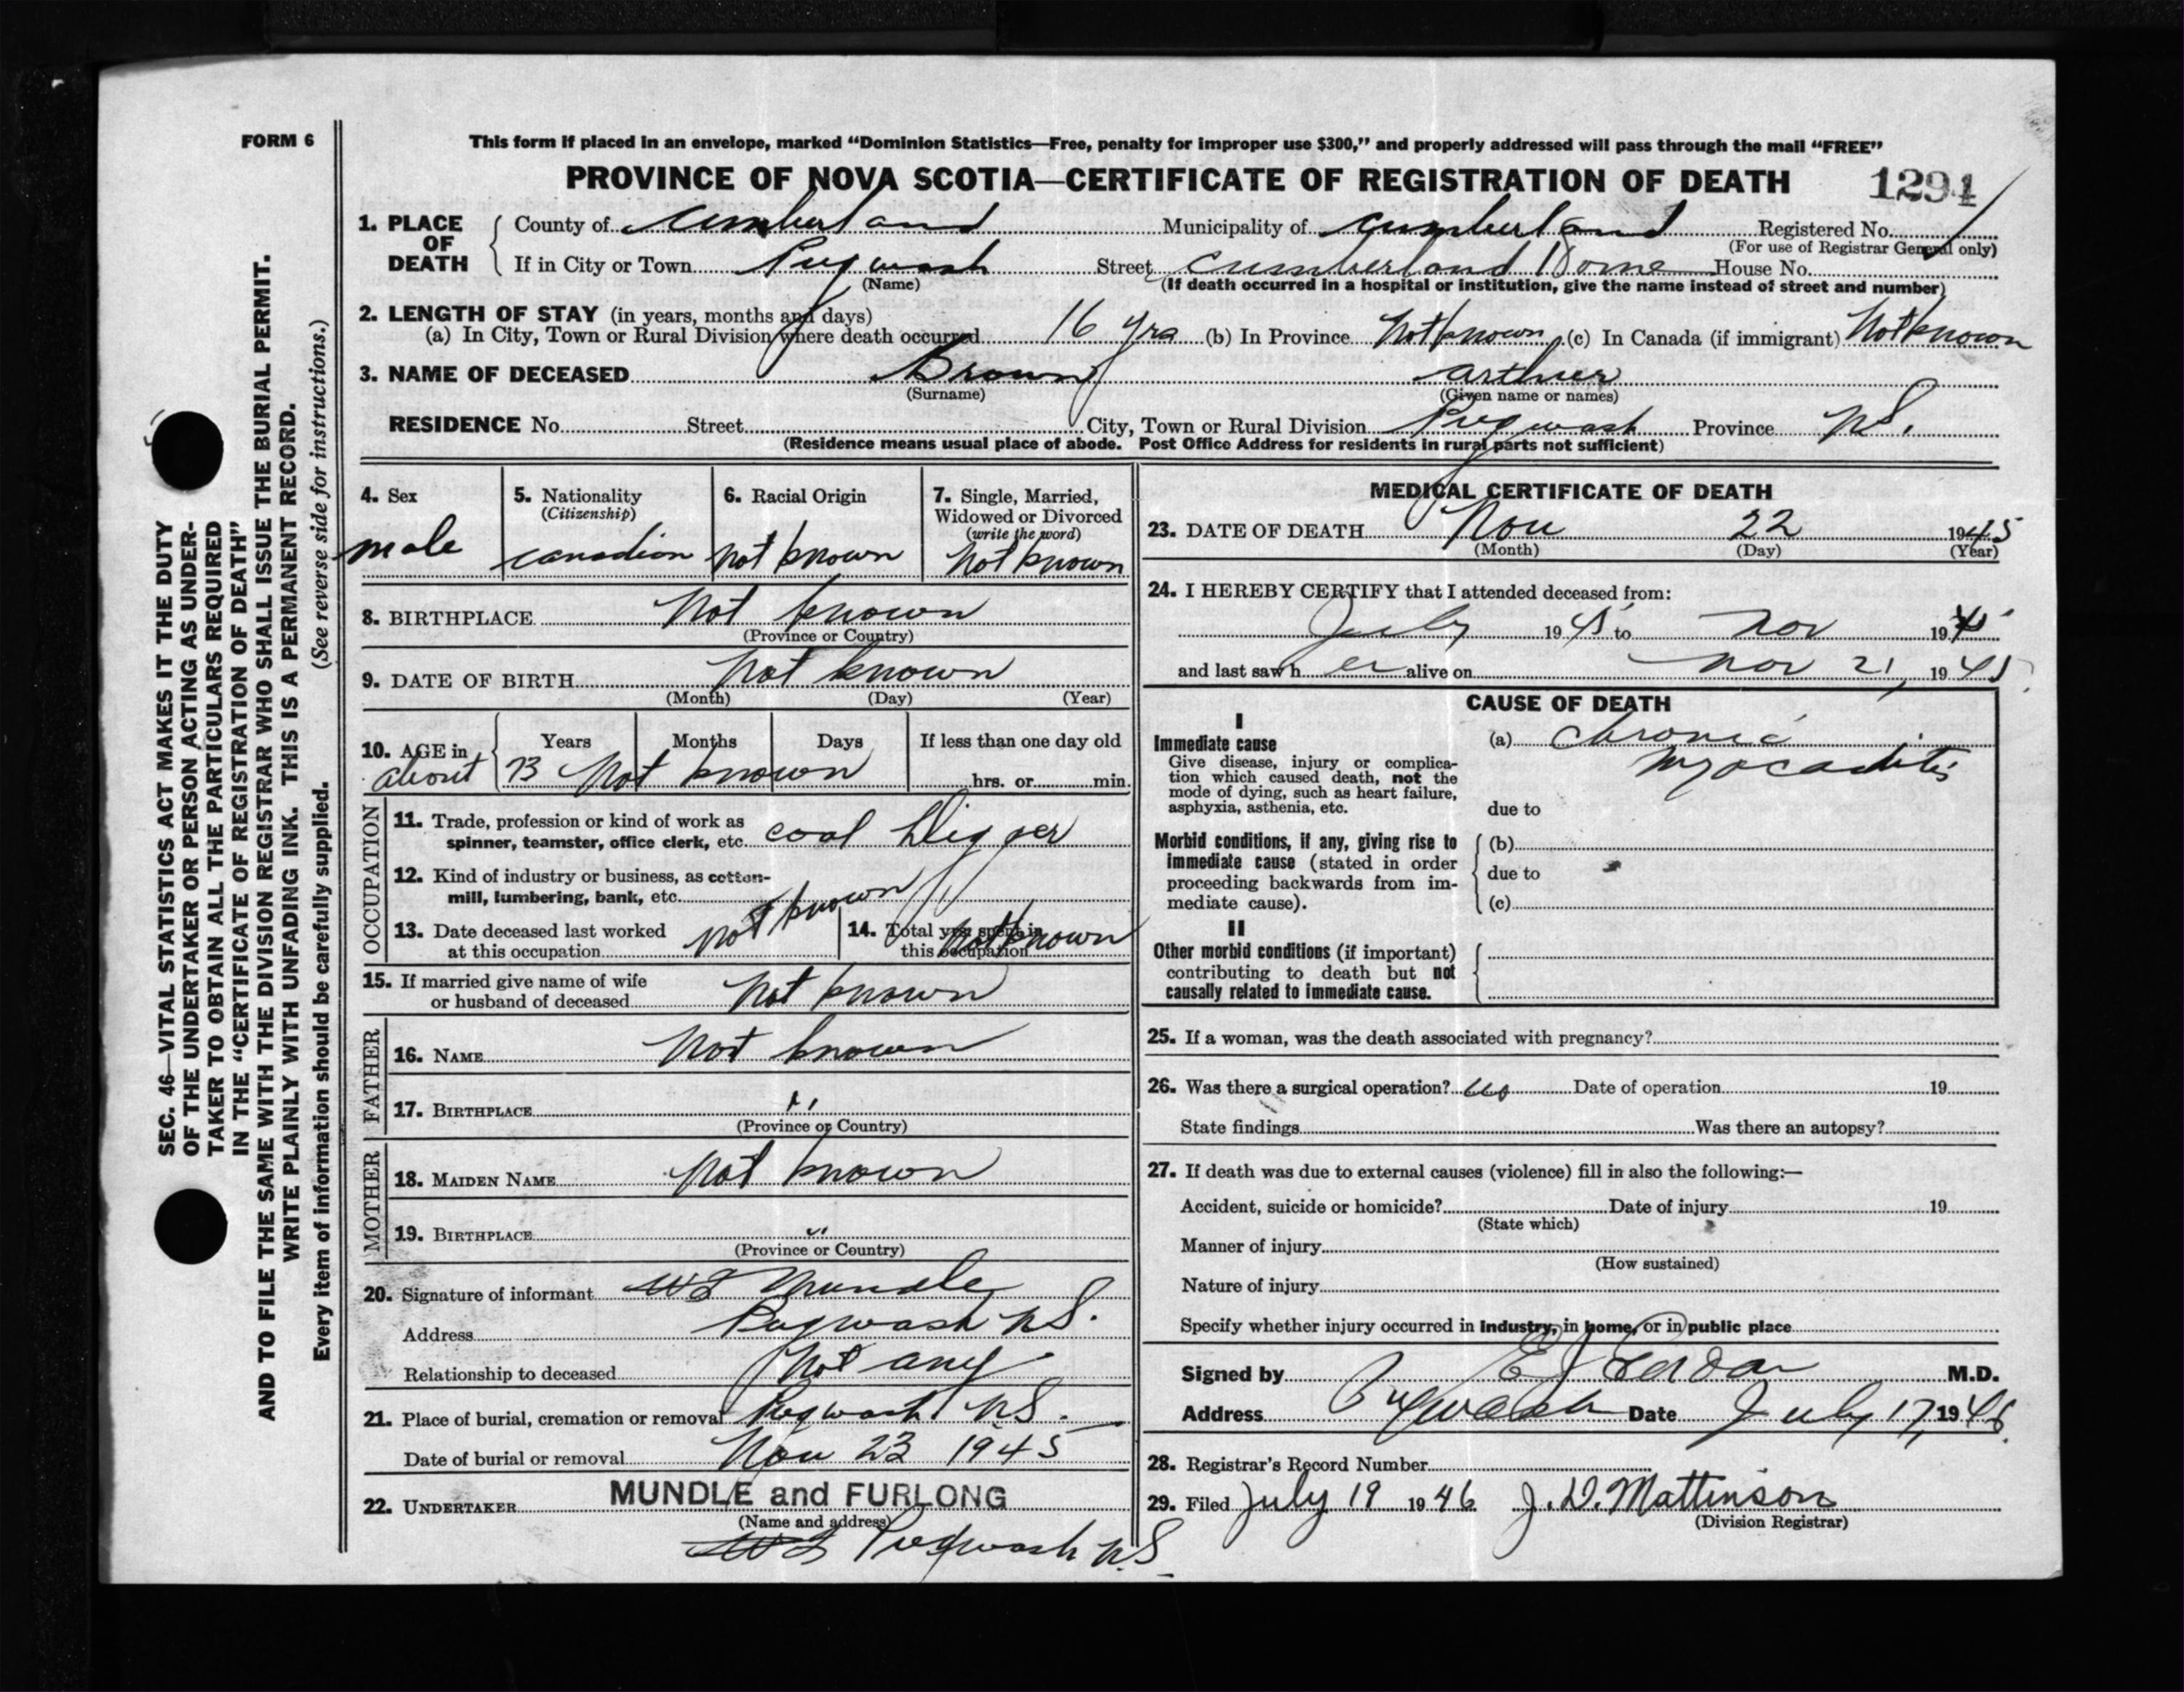 FORM 6
This form if placed in an envelope, marked “Dominion Statistics—Free, penalty for improper use $300,” and properly addressed will pass through the mail “FREE”
PROVINCE OF NOVA SCOTIA—CERTIFICATE OF REGISTRATION OF DEATH
1294
1. PLACE OF DEATH
County of Cumberland Municipality of Cumberland Registered No.
(For use of Registrar General only)
If in City or Town Pugwash Street Cumberland Home House No.
(Name) (If death occurred in a hospital or institution, give the name instead of street and number)
2. LENGTH OF STAY (in years, months and days)
(a) In City, Town or Rural Division where death occurred 16 yrs (b) In Province Not known (c) In Canada (if immigrant) Not known
3. NAME OF DECEASED Brown Arthur
(Surname) (Given name or names)
RESIDENCE No. Street City, Town or Rural Division Pugwash Province N.S.
(Residence means usual place of abode. Post Office Address for residents in rural parts not sufficient)
4. Sex
male
5. Nationality
(Citizenship)
Canadian
6. Racial Origin
Not known
7. Single, Married,
Widowed or Divorced
(write the word)
Not known
8. BIRTHPLACE Not known
(Province or Country)
9. DATE OF BIRTH Not known
(Month) (Day) (Year)
10. AGE in Years Months Days If less than one day old
about 73 Not known hrs. or min.
OCCUPATION
11. Trade, profession or kind of work as
spinner, teamster, office clerk, etc. coal Digger
12. Kind of industry or business, as cotton-
mill, lumbering, bank, etc.
13. Date deceased last worked
at this occupation Not known
14. Total yrs. spent in
this occupation Not known
15. If married give name of wife
or husband of deceased Not known
FATHER
16. NAME Not known
17. BIRTHPLACE "
(Province or Country)
MOTHER
18. MAIDEN NAME Not known
19. BIRTHPLACE "
(Province or Country)
20. Signature of informant Mundle
Address Pugwash N.S.
Relationship to deceased Not any
21. Place of burial, cremation or removal Pugwash N.S.
Date of burial or removal Nov 23 1945
22. UNDERTAKER MUNDLE and FURLONG
(Name and address)
Pugwash N.S.
MEDICAL CERTIFICATE OF DEATH
23. DATE OF DEATH Nov 22 1945
(Month) (Day) (Year)
24. I HEREBY CERTIFY that I attended deceased from:
July 1945 to Nov 1945
and last saw h er alive on Nov 21, 1945
CAUSE OF DEATH
I
Immediate cause
Give disease, injury or complica-
tion which caused death, not the
mode of dying, such as heart failure,
asphyxia, asthenia, etc.
(a) Chronic
Myocaditis
due to
Morbid conditions, if any, giving rise to
immediate cause (stated in order
proceeding backwards from im-
mediate cause).
(b)
due to
(c)
II
Other morbid conditions (if important)
contributing to death but not
causally related to immediate cause.
25. If a woman, was the death associated with pregnancy?
26. Was there a surgical operation? no Date of operation 19
State findings Was there an autopsy?
27. If death was due to external causes (violence) fill in also the following:—
Accident, suicide or homicide? Date of injury 19
(State which)
Manner of injury
(How sustained)
Nature of injury
Specify whether injury occurred in industry, in home, or in public place
Signed by M.D.
Address Pugwash Date July 17, 1946
28. Registrar's Record Number
29. Filed July 19 1946 J. D. Mattinson
(Division Registrar)
SEC. 46—VITAL STATISTICS ACT MAKES IT THE DUTY
OF THE UNDERTAKER OR PERSON ACTING AS UNDER-
TAKER TO OBTAIN ALL THE PARTICULARS REQUIRED
IN THE “CERTIFICATE OF REGISTRATION OF DEATH”
AND TO FILE THE SAME WITH THE DIVISION REGISTRAR WHO SHALL ISSUE THE BURIAL PERMIT.
WRITE PLAINLY WITH UNFADING INK. THIS IS A PERMANENT RECORD.
Every item of information should be carefully supplied. (See reverse side for instructions.)